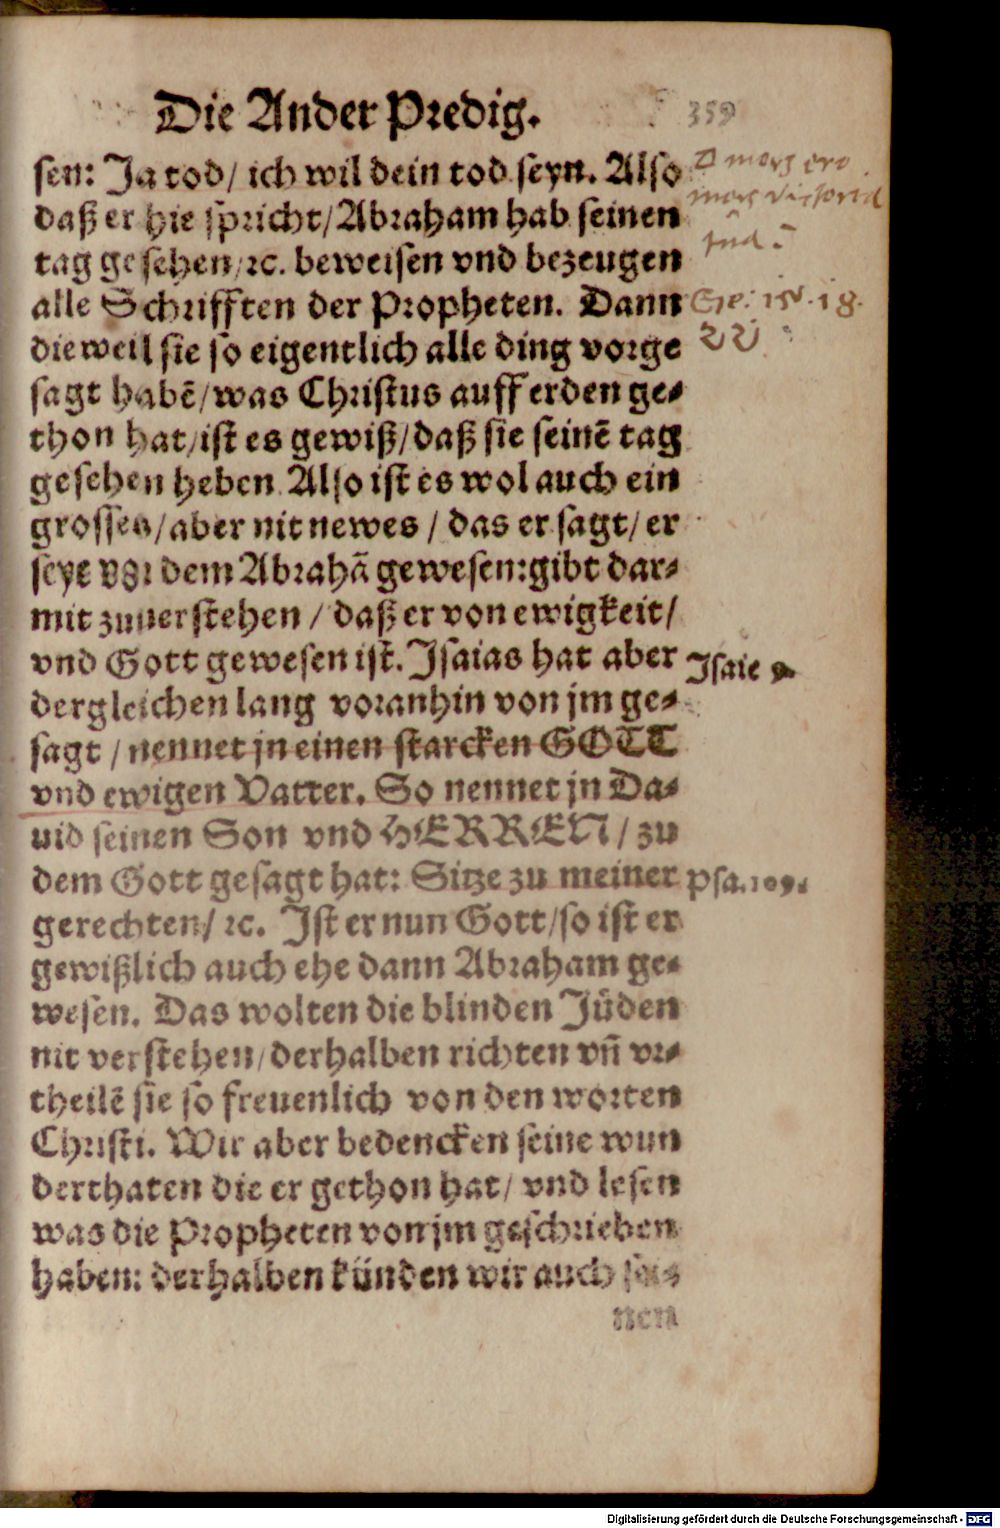 Die Ander Predig. 359
sen: Ja tod/ ich wil dein tod seyn. Also
daß er hie spricht/ Abraham hab seinen
tag gesehen/ ꝛc. beweisen vnd bezeugen
alle Schrifften der Propheten. Dann
dieweil sie so eigentlich alle ding vorge
sagt habē/ was Christus auff erden ge⸗
thon hat/ ist es gewiß/ daß sie seinē tag
gesehen heben. Also ist es wol auch ein
grosses/ aber nit newes / das er sagt/ er
seye vor dem Abrahā gewesen: gibt dar⸗
mit zuuerstehen / daß er von ewigkeit/
vnd Gott gewesen ist. Isaias hat aber
dergleichen lang voranhin von jm ge⸗
sagt / nennet jn einen starcken GOTT
vnd ewigen Vatter. So nennet jn Da⸗
uid seinen Son vnd HERREN / zu
dem Gott gesagt hat: Sitze zu meiner
gerechten/ ꝛc. Ist er nun Gott/ so ist er
gewißlich auch ehe dann Abraham ge⸗
wesen. Das wolten die blinden Jüden
nit verstehen/ derhalben richten vñ vr⸗
theilē sie so freuenlich von den worten
Christi. Wir aber bedencken seine wun
derthaten die er gethon hat/ vnd lesen
was die Propheten von jm geschrieben
haben: derhalben künden wir auch sei⸗
nen
O mors ero
mors
Ge. 15. 18.
22
Isaie 9.
Psa. 109.
Digitalisierung gefördert durch die Deutsche Forschungsgemeinschaft - DFG